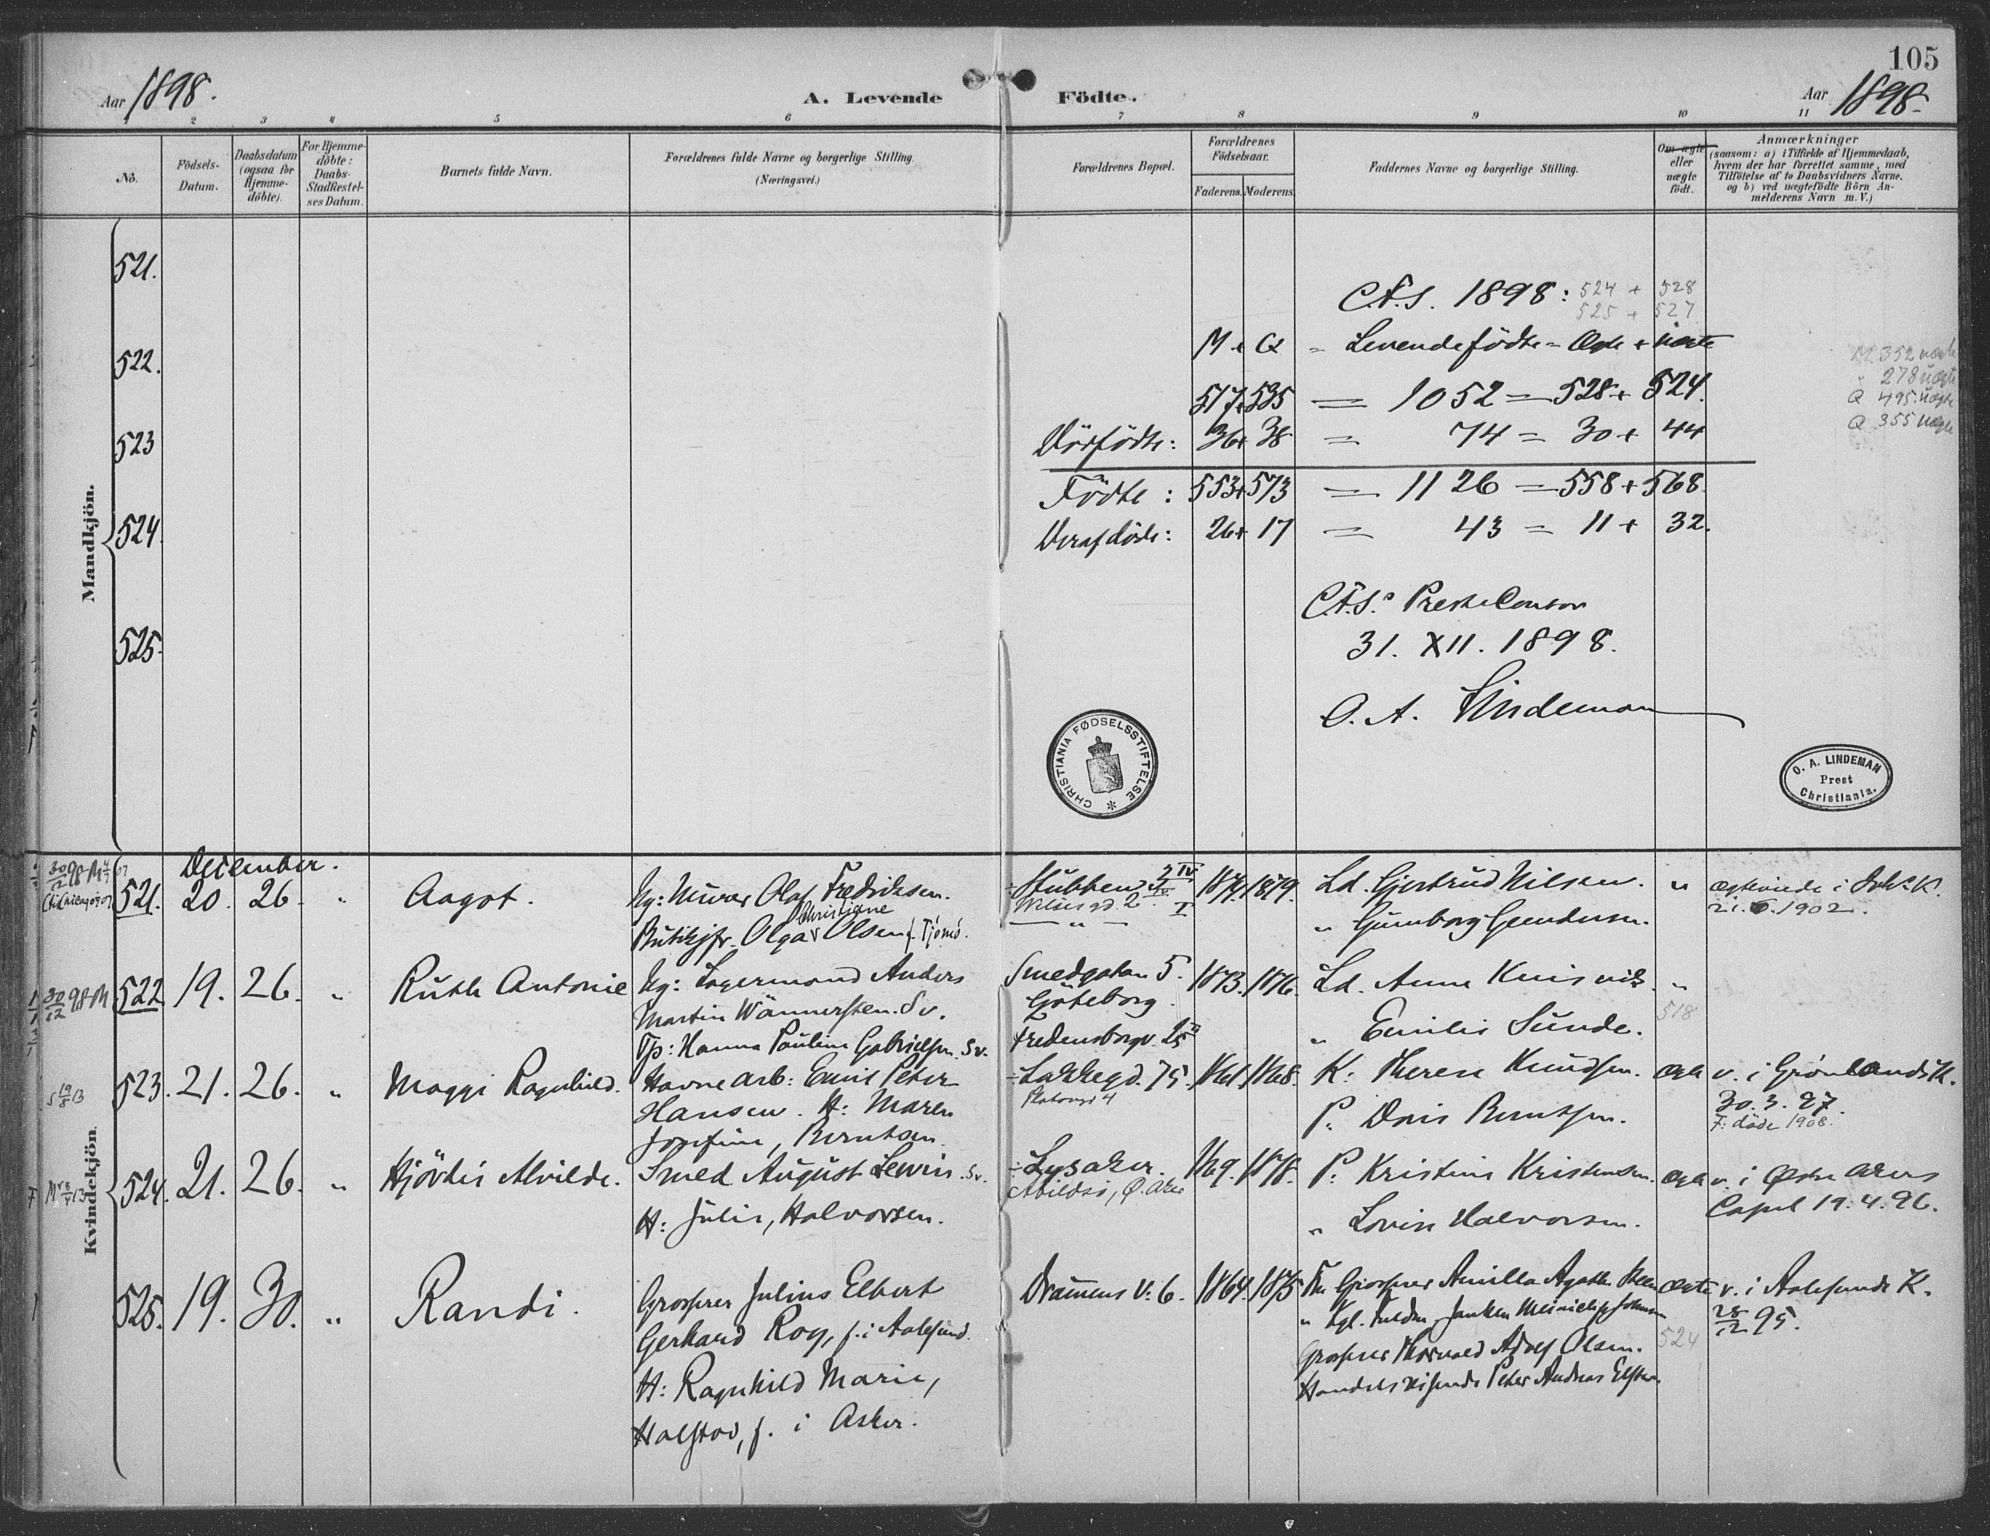 105
Aar 1898.
A. Levende Födte.
Aar 1898.
1 2 3 4 5 6 7 8 9 10 11
No.
Födsels-
Datum.
Daabsdatum
(ogsaa for
Hjemme-
döbte).
For Hjemme-
döbte:
Daabs-
Stadfæstel-
ses Datum.
Barnets fulde Navn.
Forældrenes fulde Navne og borgerlige Stilling.
(Næringsvei.)
Forældrenes Bopæl.
Forældrenes
Födselsaar.
Faderens. Moderens.
Faddernes Navne og borgerlige Stilling.
Om ægte
eller
uægte
födt.
Anmærkninger
(saasom: a) i Tilfælde af Hjemmedaab,
hvem der har forrettet samme, med
Tilföielse af to Daabsvidners Navne,
og b) ved uægtefödte Börn An-
melderens Navn m. V.)
Mandkjön.
521.
522.
523
524.
525.
C.F.S. 1898: 524 + 528
525 + 527.
M + Q = Levendefödte = Ægte + Uægte
517+535 = 1052 = 528 + 524.
Dödfödte: 36+38 = 74 = 30 + 44
Födte: 553+573 = 1126 = 558 + 568.
Deraf döde: 26+17 = 43 = 11 + 32.
352
278 uægte
Q 495 uægte
Q 355 uægte
C.F.S.s PresteContor
31. XII. 1898.
O. A. Lindeman
CHRISTIANIA FØDSELSSTIFTELSE
O. A. LINDEMAN
Prest
Christiania.
Kvindekjön.
December.
521. 20. 26. " Aagot.
Ug: Murer Olaf Fredriksen.
Christiane
Butikjfr. Olga Olsen f. Tjømø.
Stubben
1879.
Ld. Gjertrud Nilsen.
" Gunborg Gundersen.
"
21.6.1902.
522 19. 26. " Ruth Antonie
Ug: Lagermand Anders
Martin Wännersten. Sv.
Tp: Hanna Pauline Gabrielsen. Sv.
Smedgatan 5.
Göteborg.
Fredensborgv. 25
1873. 1876.
Ld. Anna
" Emilie Sunde.
"
518
523. 21. 26. " Maggi Ragnhild.
Havnearb: Emil Peter
Hansen. H: Maren
Josefine, Berntsen.
Lakkegd. 75.
1868.
K: Therese Knudsen.
P: Doris Berntsen.
ægte
v. i Grønlands K.
30.3.97.
F: døde 1908.
524. 21. 26. " Hjördis Alvilde.
Smed August Lewin. Sv.
H: Julie, Halvorsen.
Lysaker.
Abildsø, Ø. Aker
1878.
P: Kristine Kristensen.
" Lovise Halvorsen.
ægte
v. i Østre Akers
Capel 19.4.96.
525. 19. 30. " Randi.
Grosserer Julius Elbert
Gerhard Roy, f. i Aalesund.
H: Ragnhild Marie,
Halstad, f. i Asker.
Drammens v. 6.
1864. 1875
Fru Grosserer Amilla Agathe
Grosserer Thorvald Adolf Olsen.
Handelsreisende Peter Andreas
ægte
524
v. i Aalesunds K.
28/12 95.